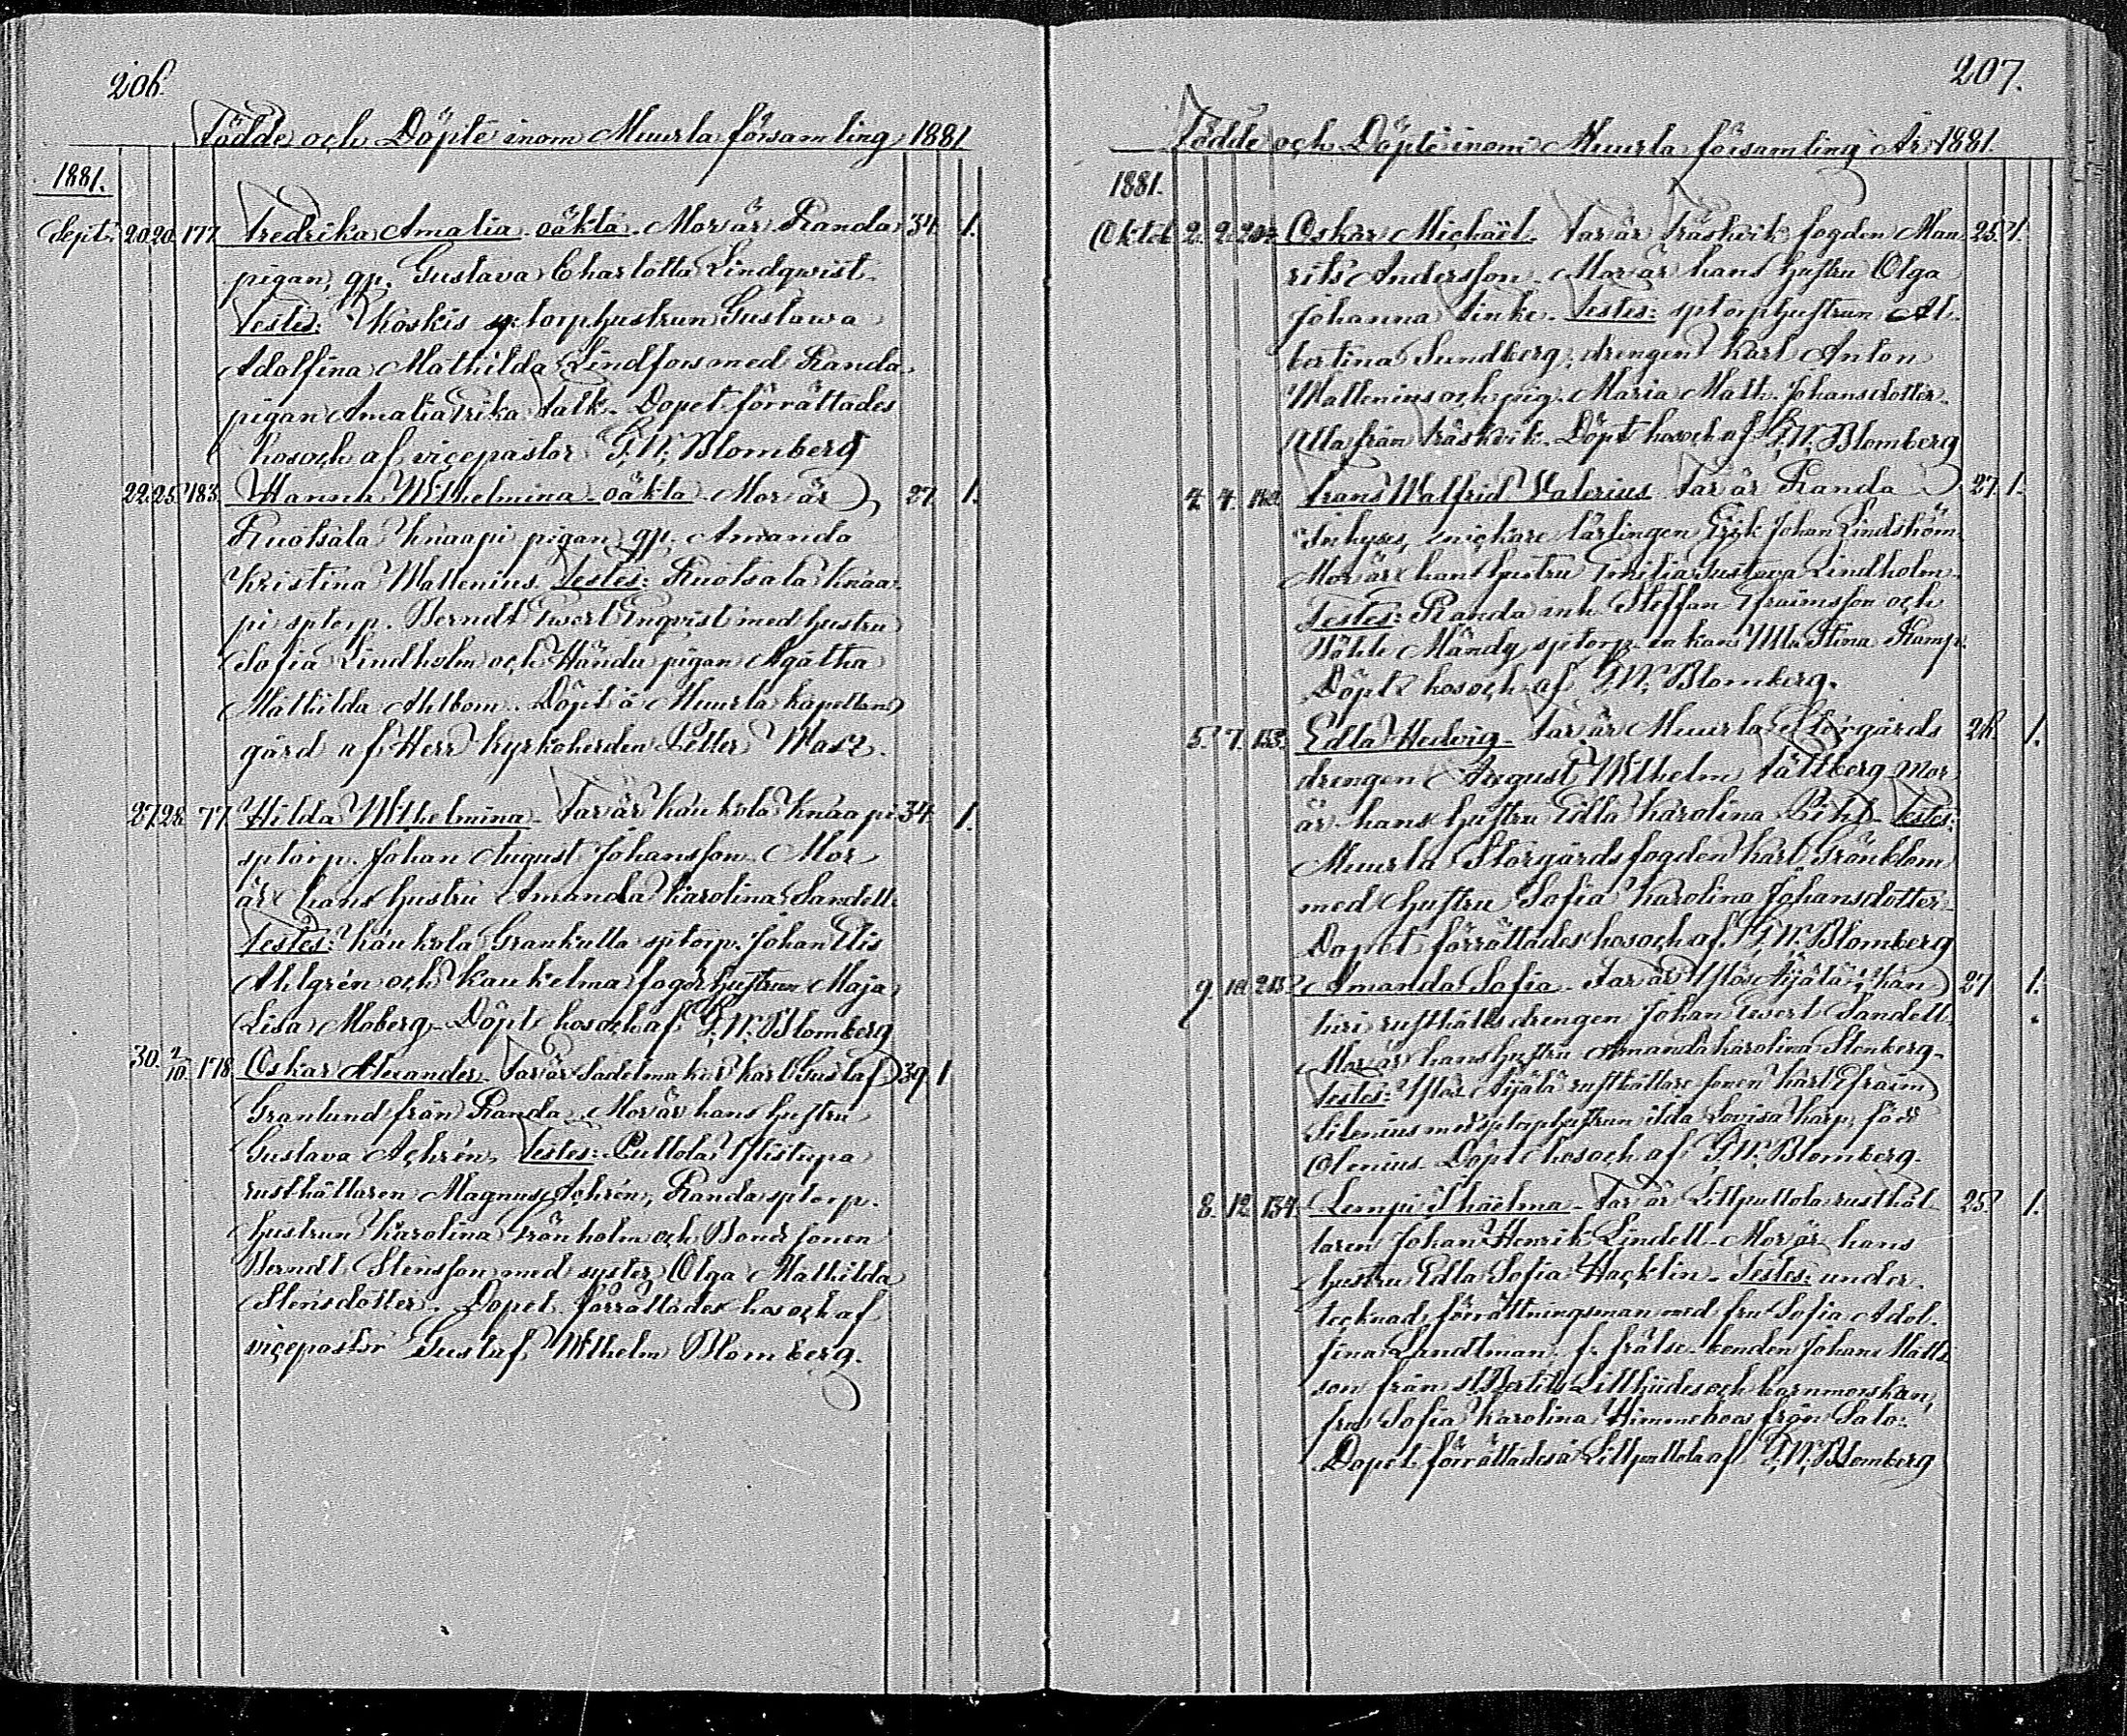 206.
Födde och Döpte inom Muurla församling 1881
1881.
Sept. 20. 20. 177. Fredrika Amalia oäkta. Mor är Randa 34. 1.
pigan, gp. Gustava Charlotta Lindqwist.
Testes: Koskis sptorphustrun Gustawa
Adolfina Mathilda Lindfors med Randa
pigan Amalia Frika Falk. Dopet förrättades
hos och af vicepastor G. W. Blomberg
22. 25. 183. Hanna Wilhelmina oäkta. Mor är 27. 1.
Ruotsala Knaapi pigan gp. Amanda
Kristina Wallenius. Testes: Ruotsala Knaa-
pi sptorp. Berndt Ewert Enqvist med hustru
Sofia Lindholm och Händä pigan Agatha
Mathilda Ahlbom. Döpt å Muurla kapellans
gård af Herr Kyrkoherden Petter
27. 28. 77. Hilda Wilhelmina. Far är Kaukola Knaapi 34. 1.
sptorp. Johan August Johansson. Mor
är hans hustru Amanda Karolina Sandell.
Testes: Kaukola Grankulla sptorp. Johan Elis
Ahlgrén och Kaukelma fogdhustrun Maja
Lisa Moberg. Döpt hos och af G. W. Blomberg
30. 2/10. 178. Oskar Alexander. Far är Sadelmakar Karl Gustaf 39. 1
Granlund från Randa. Mor är hans hustru
Gustava Achrén. Testes: Pullola Ylistupa
rusthållaren Magnus Achrén, Randa sptorp.
hustrun Karolina Grönholm och Bondsonen
Berndt Stensson med syster Olga Mathilda
Stensdotter. Dopet förrättades hos och af
vicepastor Gustaf Wilhelm Blomberg.
207.
Födde och Döpte inom Muurla församling År 1881.
1881.
Oktob. 2. 2. Oskar Michaël. Far är Träskvik fogden Mau- 25. 1.
rits Andersson. Mor är hans hustru Olga
Johanna Finke. Testes: sptorphustrun Al-
bertina Sundberg, drengen Karl Anton
Wallenius och pig. Maria Math. Johansdotter.
Alla från Träskvik. Döpt hos och af G. W. Blomberg
4. 4. Frans Walfrid Valerius. Far är Randa 27. 1.
inhyses, snickare lärlingen Erik Johan Lindström.
Mor är hans hustru Emilia Gustava Lindholm.
Testes: Randa inh. Steffan Efraimsson och
Mändy sptorp. enkan Ulla Stina Kamp.
Döpt hos och af G. W. Blomberg.
5. 7. 153. Edla Hedvig. Far är Muurla Storgårds 26. 1.
drengen August Wilhelm Fällberg. Mor
är hans hustru Edla Karolina Pihl. Testes:
Muurla Storgårds fogden Karl Grönblom
med hustru Sofia Karolina Johansdotter.
Dopet förrättades hos och af G. W. Blomberg
9. 10. Amanda Sofia. Far är Ylös Äijälä, Kän- 27 1.
türi rusthålls drengen Johan Ewert Sandell.
Mor är hans hustru Amanda Karolina Stenberg.
Testes: Ylös Äijälä rusthållare sonen Karl Efraim
Silenius med sptorphustrun Ida Lovisa Karp, född
Olenius. Döpt hos och af G. W. Blomberg.
8. 12. 134. Lempi Thäelma. Far är Lillpullola rusthål- 25. 1.
laren Johan Henrik Lindell. Mor är hans
hustru Edla Sofia Hacklin. Testes: under-
tecknad förrättningsman med fru Sofia Adol-
fina Landtman, f. frälse-bonden Johan Matts-
son från St Bertils Lillhiides och barnmorskan,
fru Sofia Karolina från Salo.
Dopet förrättades å Lillpullola af G. W. Blomberg